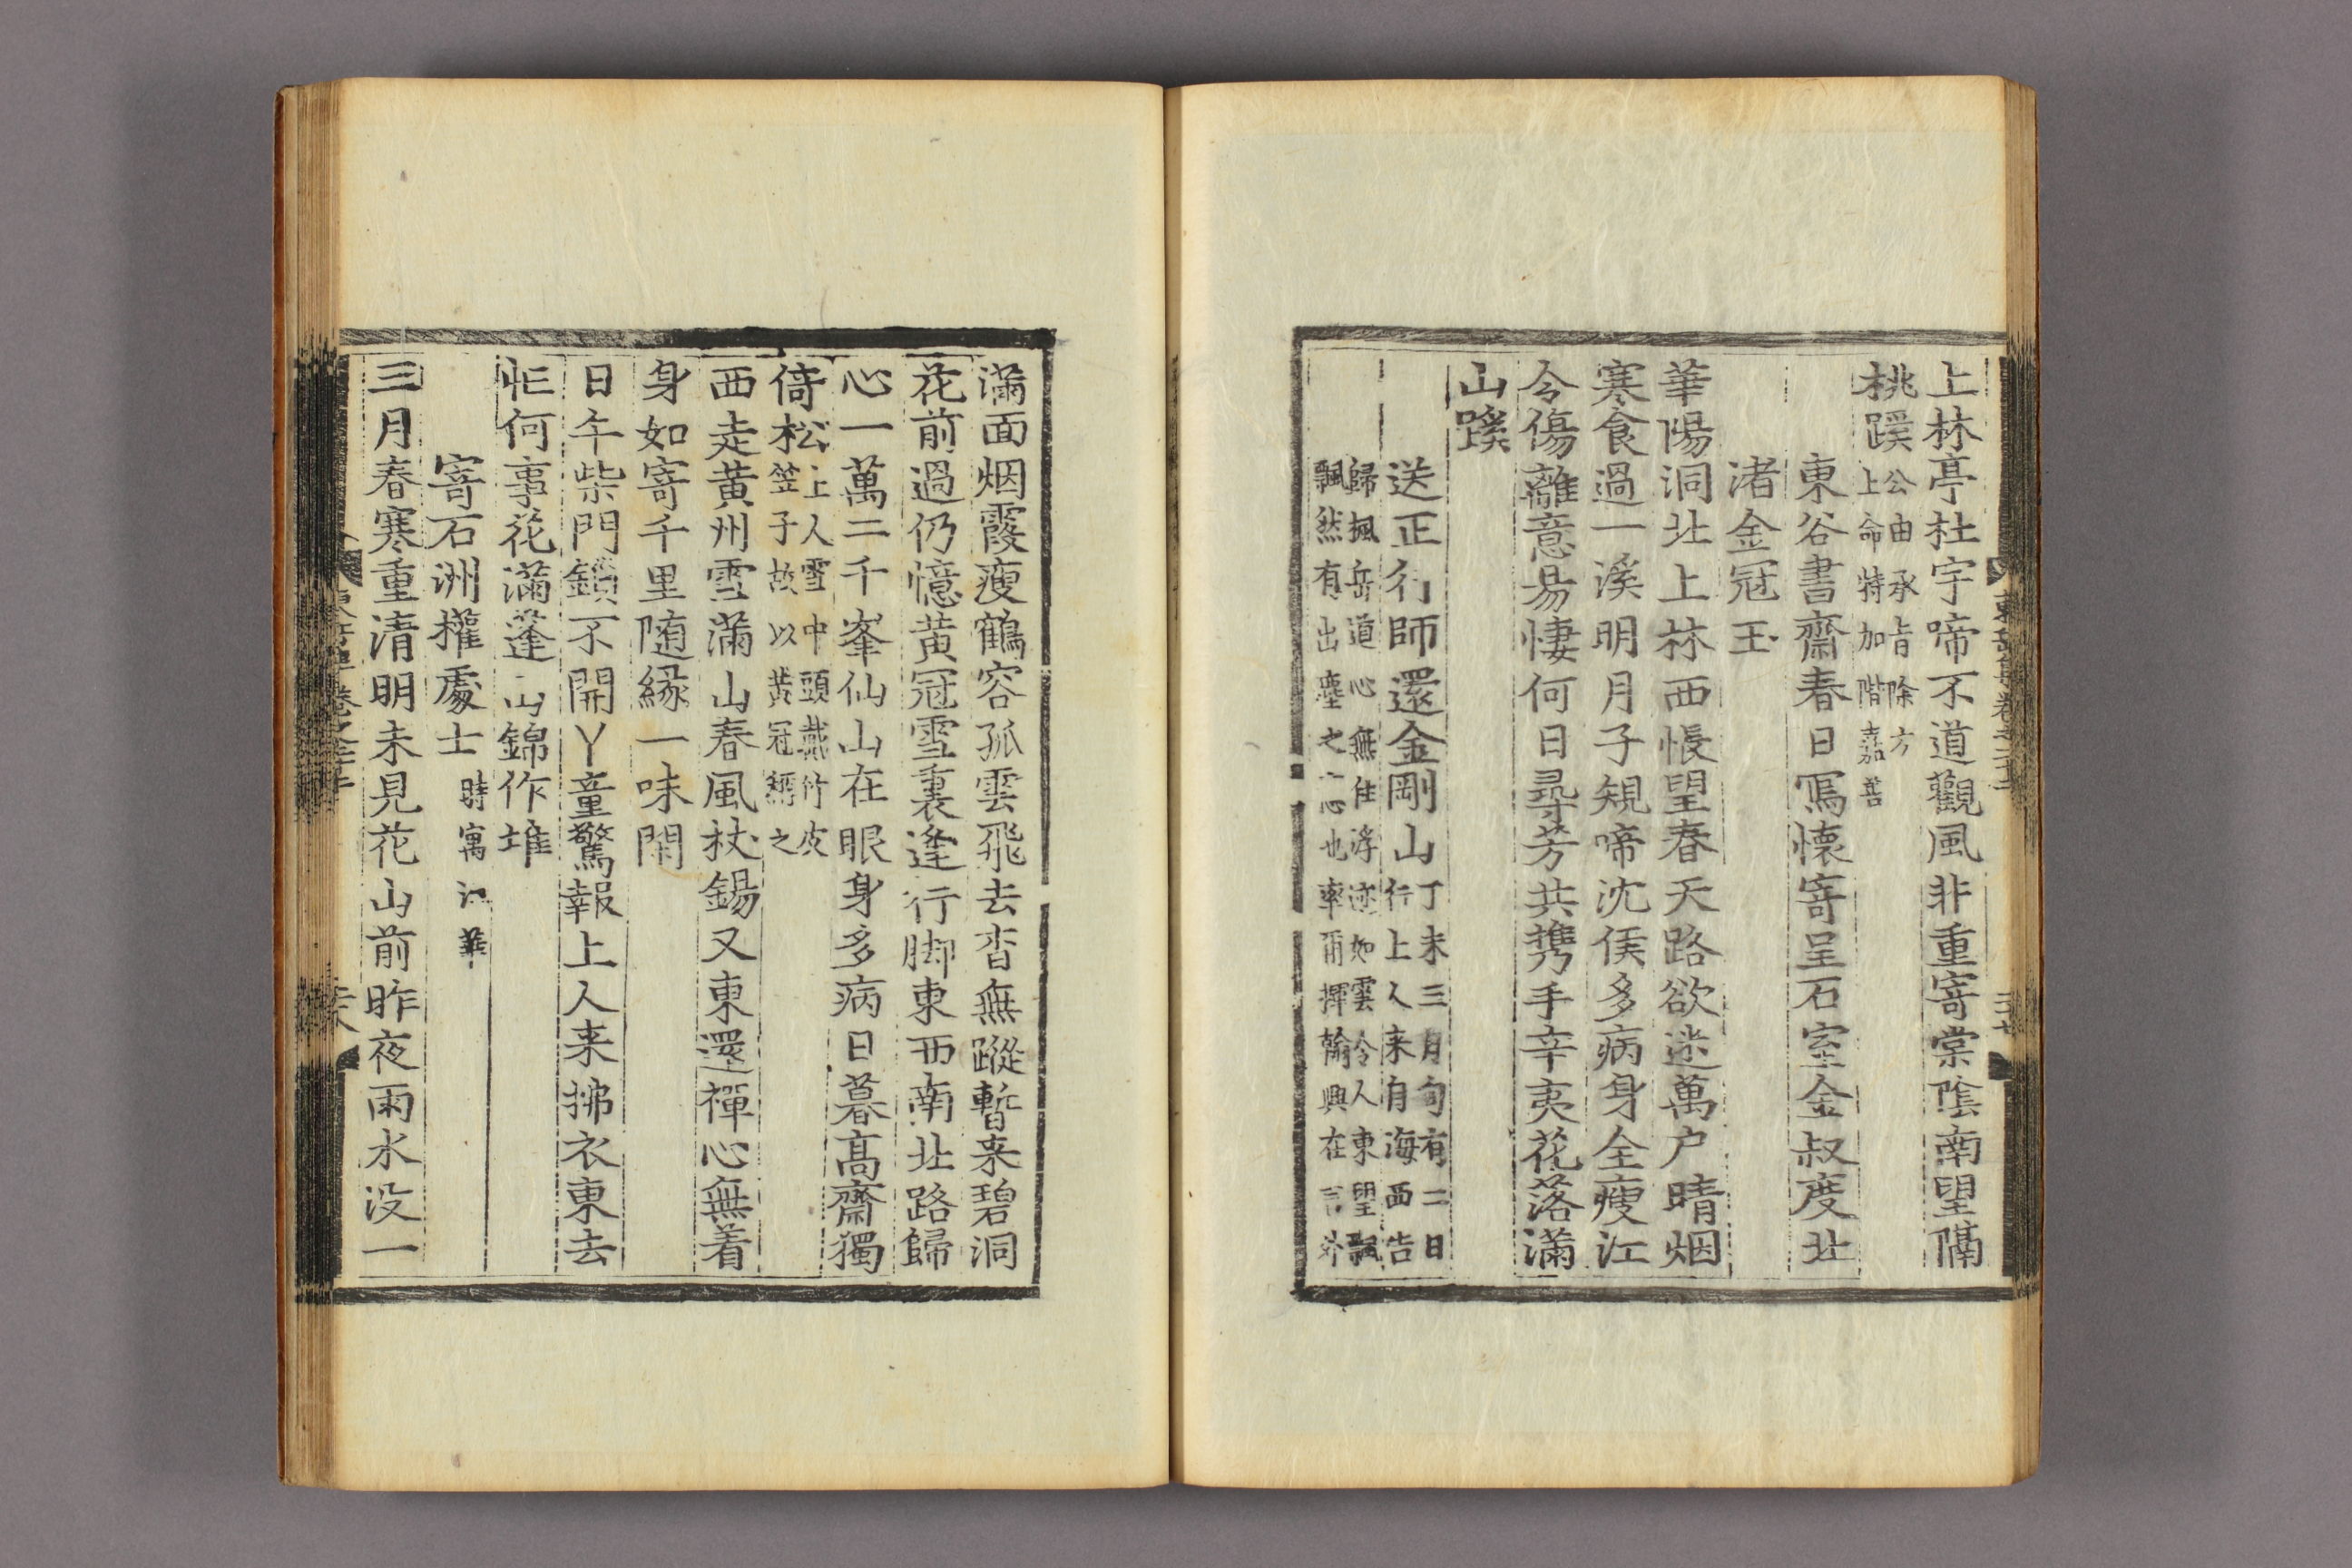 上林亭杜宇啼不道觀風非重寄棠陰南望隔
桃蹊
公由承旨除方
上命特加階嘉善
東谷書齋春日寫懷寄呈石室金叔度北
渚金冠玉
華陽洞北上林西悵望春天路欲迷萬户晴烟
寒食過一溪明月子規啼沈侯多病身全瘦江
令傷離意易悽何日尋芳共携手辛夷花落滿
山蹊
送正行師還金剛山
丁未三月旬有二日
行上人来自海西告
歸楓岳道心無住浮迹如雲令人東望飄
飄然有出塵之心也率爾揮翰興在言外
滿面烟霞瘦鶴容孤雲飛去杳無蹤暫来碧洞
花前過仍憶黄冠雪裏逢行脚東西南北路歸
心一萬二千峯仙山在眼身多病日暮高齋獨
倚松
上人雪中頭戴竹皮
笠子故以黄冠稱之
西走黄州雪滿山春風杖錫又東還禪心無着
身如寄千里随緣一味閑
日午柴門鎖不開丫童驚報上人来拂衣東去
忙何事花滿蓬山錦作堆
寄石洲權處士
時寓江華
三月春寒重清明未見花山前昨夜雨水没一